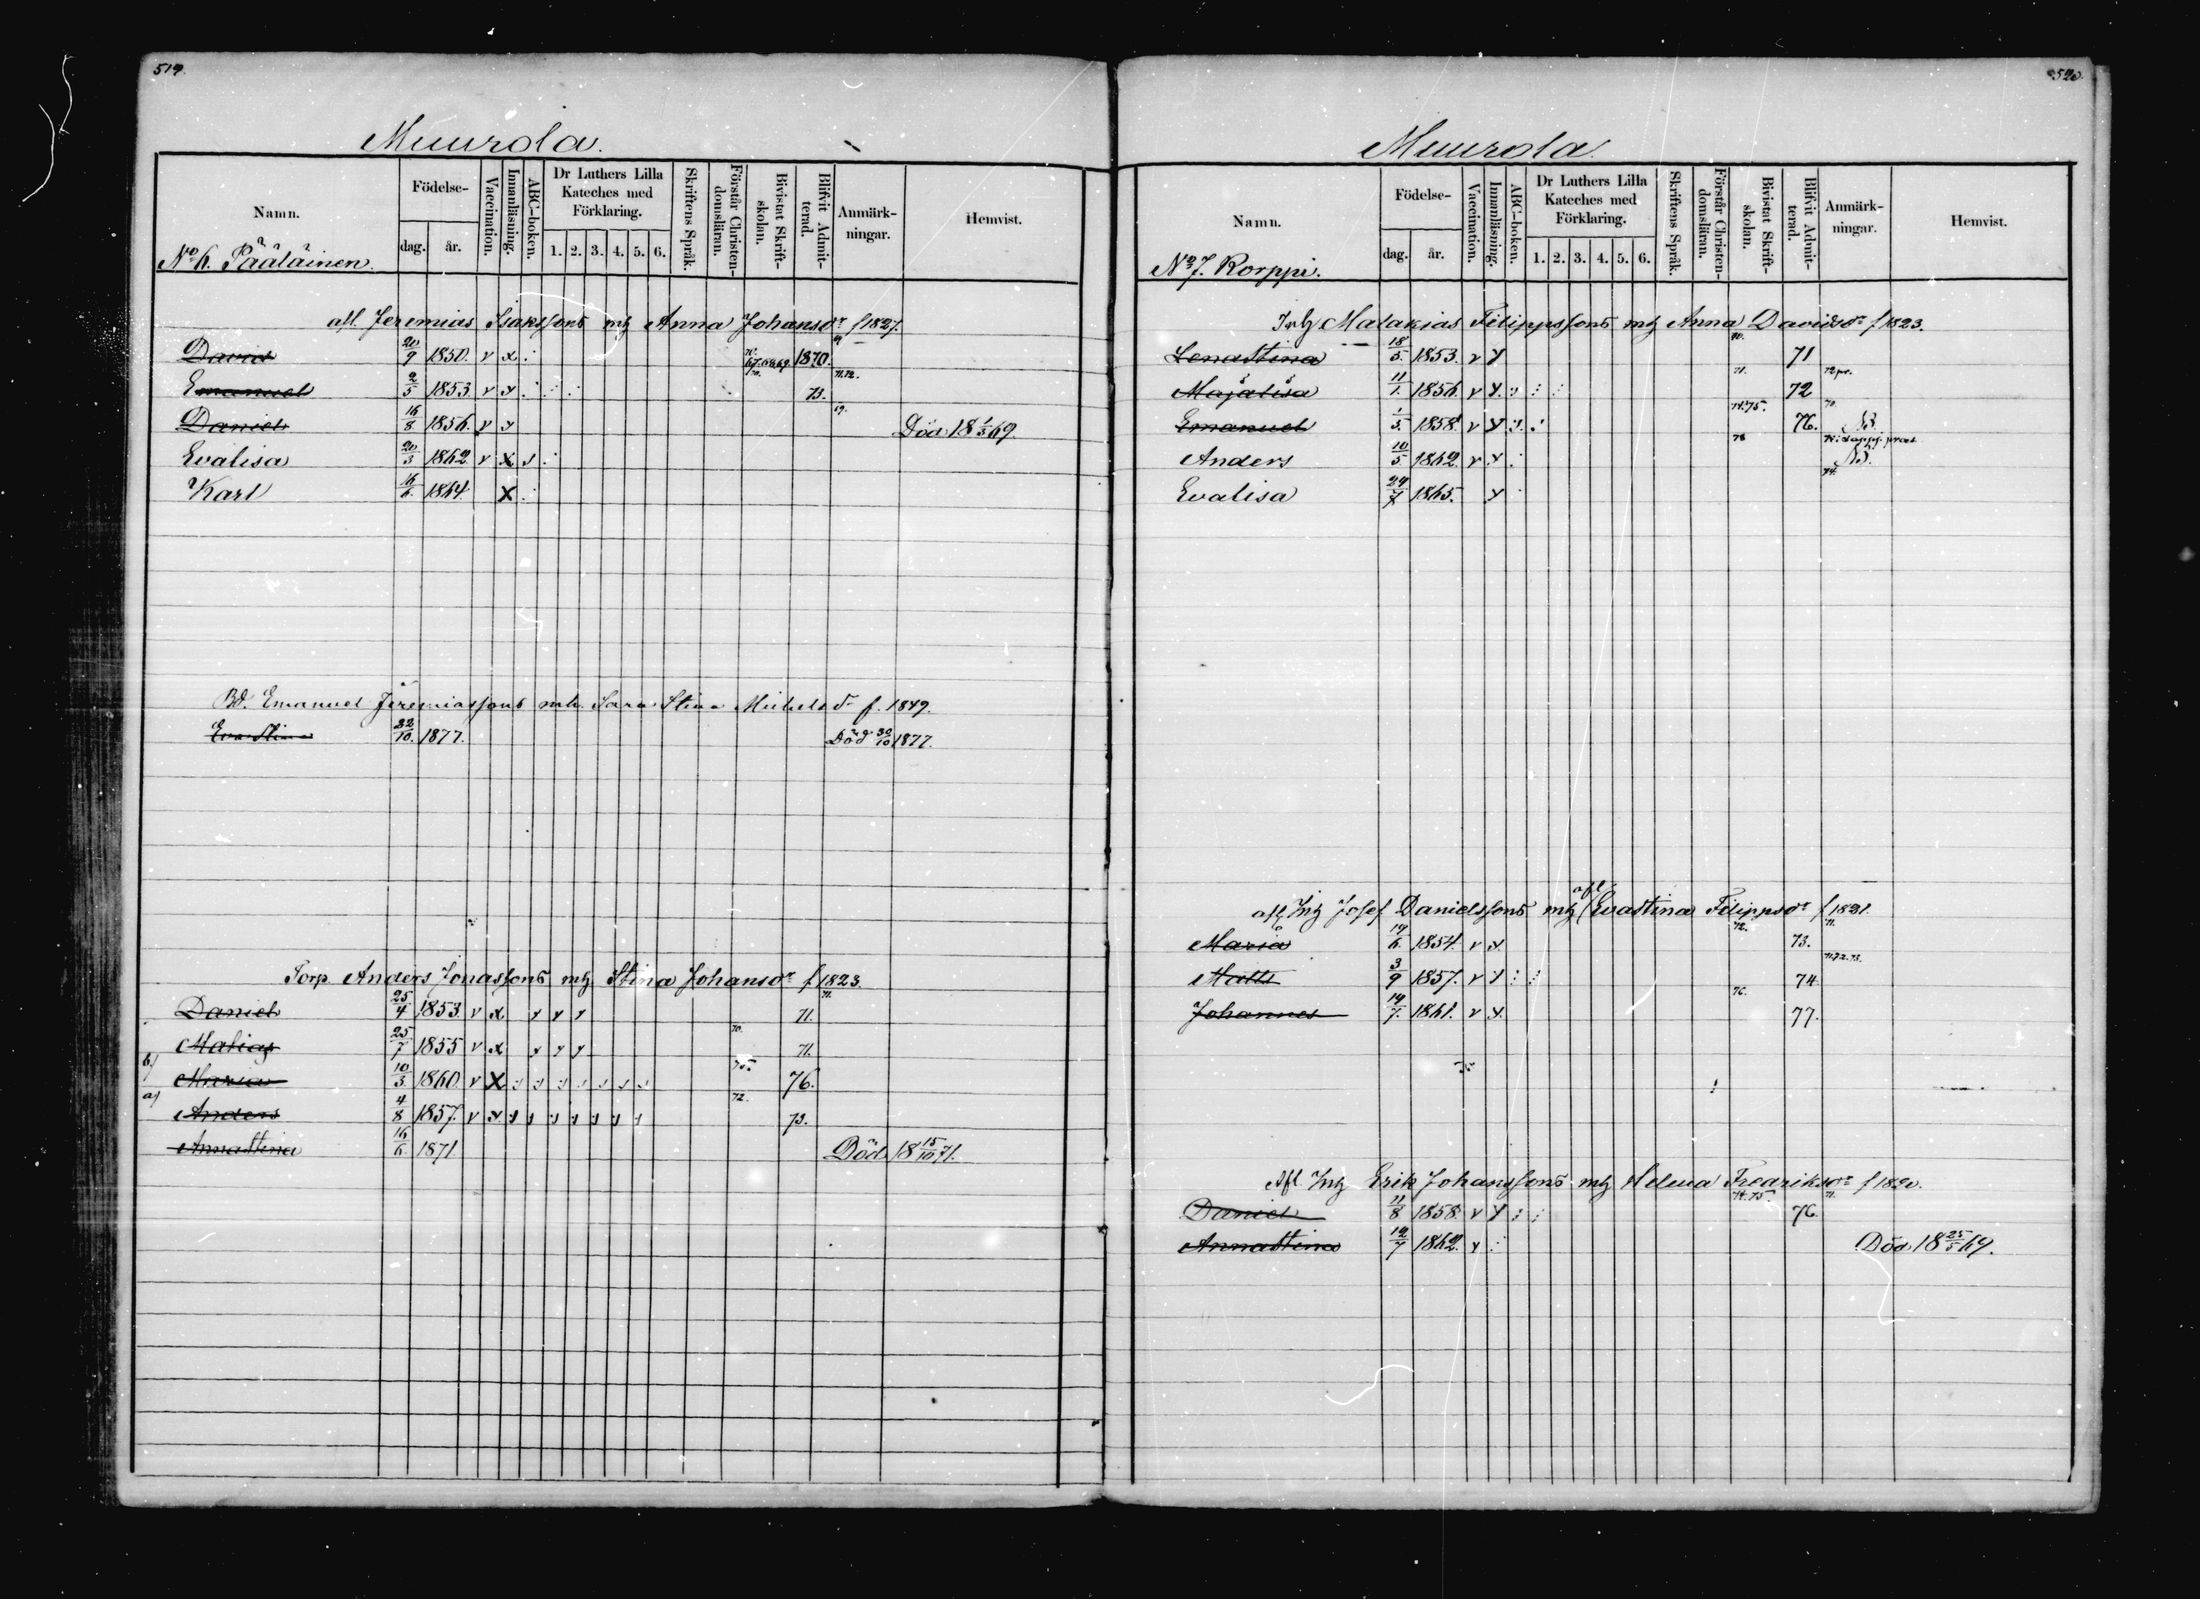 519.
Muurola.
Namn. Födelse- dag. år. Vaccination. Innanläsning. ABC-boken. Dr Luthers Lilla Kateches med Förklaring. 1. 2. 3. 4. 5. 6. Skriftens Språk. Förstår Christendomsläran. Bivistat Skriftskolan. Blifvit Admitterad. Anmärkningar. Hemvist.
No 6. Pääläinen.
afl. Jeremias Isakssons mg Anna Johansdr f 1827.
David 20/9 1850. v x 67.68.69 1870.
Emanuel 2/5 1853. v y 71.72. 73.
Daniel 16/8 1856. v y 69. Död 18 1/3 69.
Evalisa 20/3 1862 v x
Karl 16/6 1864. x
Bd. Emanuel Jeremiassons mh. Sara Stina Michelsd f. 1849.
Eva Stina 22/10 1877. Död 30/10 1877.
Torp Anders Jonassons mg Stina Johansdr f 1823.
Daniel 25/4 1853 v x y y y 71.
Matias 25/7 1855 v x y y y 70. 71.
b) Maria 10/3 1860. v x 75. 76.
a) Anders 4/8 1857. v x 72. 73.
Annastina 16/6 1871 Död 18 15/10 71.
520.
Muurola.
Namn. Födelse- dag. år. Vaccination. Innanläsning. ABC-boken. Dr Luthers Lilla Kateches med Förklaring. 1. 2. 3. 4. 5. 6. Skriftens Språk. Förstår Christendomsläran. Bivistat Skriftskolan. Blifvit Admitterad. Anmärkningar. Hemvist.
No 7. Korppi.
Inh Malakias Filippssons mg Anna Davidsdr f 1823.
Lenastina 18/5 1853. v y 70. 71
Majalisa 11/1 1856. v y. 71. 72 72 pr.
Emanuel 1/5. 1858. v y 74.75. 76. 70.
Anders 10/5 1862. v y 78
Evalisa 24/7 1865. y 74.
afl Inh Josef Danielssons mg afl Evastina Filippsdr f 1821.
Maria 19/6 1854. v y. 72. 73. 71.
Matts 3/9 1857. v y 74 71.72.73.
Johannes 19/7. 1861. v y. 76. 77.
Afl Inh Erik Johanssons mg Helena Fredriksdr f 1820.
Daniel 11/8 1858. v y 74.75. 76. 71.
Annastina 12/7 1862. y Död 18 25/5 69.